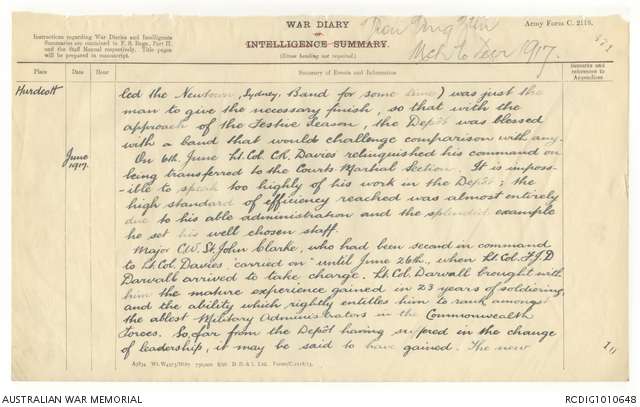 WAR DIARY
or
INTELLIGENCE SUMMARY.
(Erase heading not required.)
Army Form C. 2118.
Instructions regarding War Diaries and Intelligence
Summaries are contained in F. S. Regs., Part II.
and the Staff Manual respectively. Title pages
will be prepared in manuscript.
Mch to Decr 1917.
Place
Date
Hour
Summary of Events and Information
Remarks and
references to
Appendices
Hurdcott
led the Newtown, Sydney, Band for some time) was just the
man to give the necessary finish, so that with the
approach of the Festive Season, the Depôt was blessed
with a band that would challenge comparison with any.
June
1917.
On 6th. June Lt. Col. C.R. Davies relinquished his command on
being transferred to the Courts Martial Section. It is imposs-
-ible to speak too highly of his work in the Depôt; the
high standard of efficiency reached was almost entirely
due to his able administration and the splendid example
he set his well chosen staff.
Major C.W. St. John Clarke, who had been second in command
to Lt. Col. Davies "carried on" until June 26th., when Lt. Col. F.J.D
Darvall arrived to take charge. Lt. Col. Darvall brought with
him the mature experience gained in 23 years of soldiering,
and the ability which rightly entitles him to rank amongst
the ablest Military Administrators in the Commonwealth
Forces. So far from the Depôt having suffered in the change
of leadership, it may be said to have gained. The new
AUSTRALIAN WAR MEMORIAL
RCDIG1010648